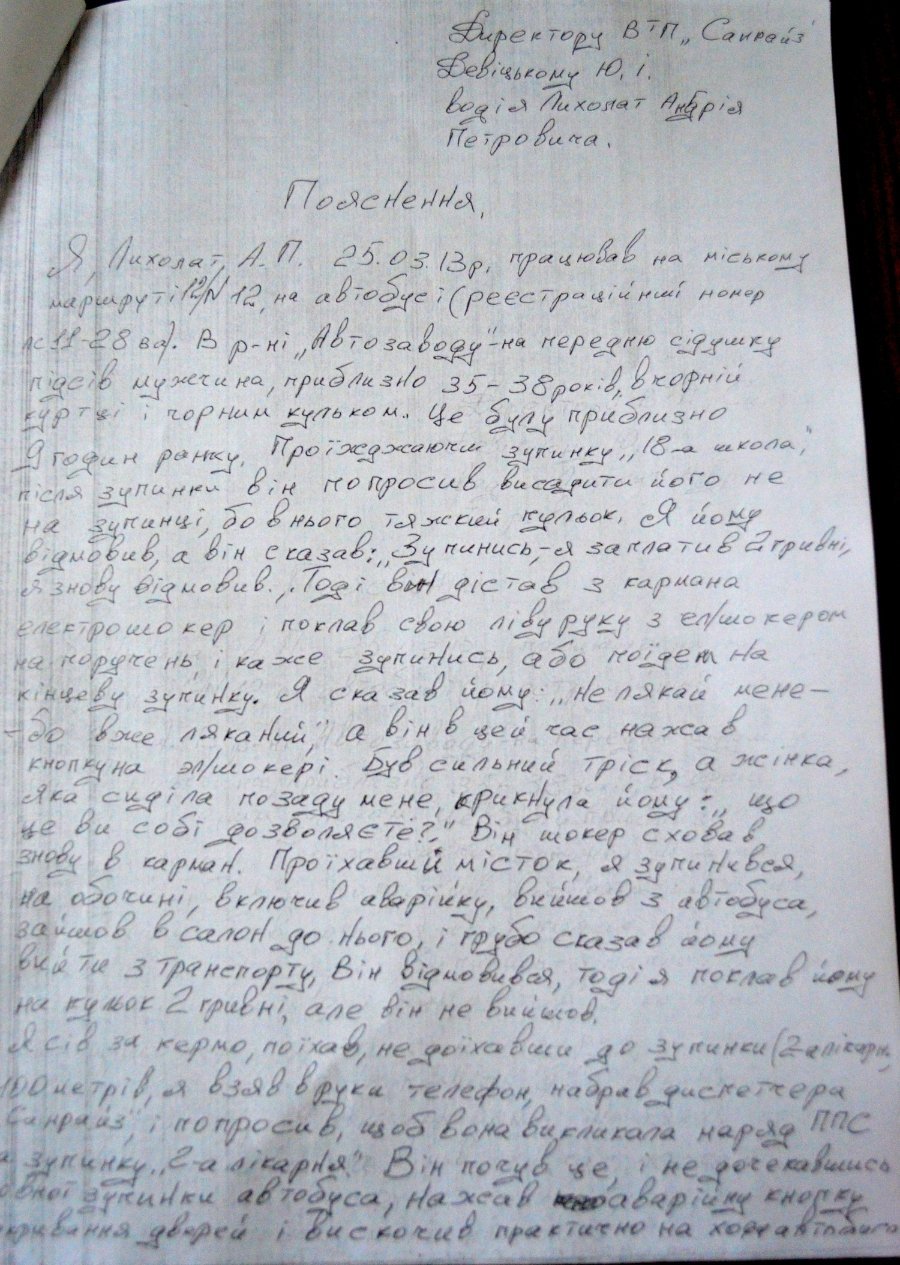 Директору ВТП „Санрайз"
Девіцькому Ю. І.
водія Лихолат Андрія
Петровича.
Пояснення,
Я, Лихолат, А.П. 25.03.13р. працював на міському
маршруті 12, на автобусі (реєстраційний номер
11-28 ва). В р-ні „Автозаводу"-на передню сідушку
підсів мужчина, приблизно 35-38 років, в чорній
куртці і чорним кульком. Це булу приблизно
9 годин ранку. Проїжджаючи зупинку „18-а школа",
після зупинки він попросив висадити його не
на зупинці, бо в нього тяжкий кульок. Я йому
відмовив, а він сказав: „Зупинись,-я заплатив 2 гривні,
я знову відмовив. Тоді він дістав з кармана
електрошокер і поклав свою ліву руку з ел/шокером
на поручень, і каже зупинись, або поїдем на
кінцеву зупинку. Я сказав йому: „не лякай мене-
-бо вже ляканий", а він в цей час нажав
кнопку на эл/шокері. Був сильний тріск, а жінка,
яка сиділа позаду мене, крикнула йому: „що
це ви собі дозволяєте?" Він шокер сховав
знову в карман. Проїхавши місток, я зупинився,
на обочині, включив аварійку, вийшов з автобуса,
зайшов в салон до нього, і грубо сказав йому
вийти з транспорту, Він відмовився, тоді я поклав йому
на кульок 2 гривні, але він не вийшов.
Я сів за кермо, поїхав, не доїхавши до зупинки (2 а лікарн,
100 метрів, я взяв в руки телефон, набрав диспетчера
Санрайз", і попросив, щоб вона викликала наряд ППС
на зупинку „2-а лікарня". Він почув це, і не дочекавшись
зупинки автобуса, нажав аварійну кнопку
дверей і вискочив практично на ходу автобуса